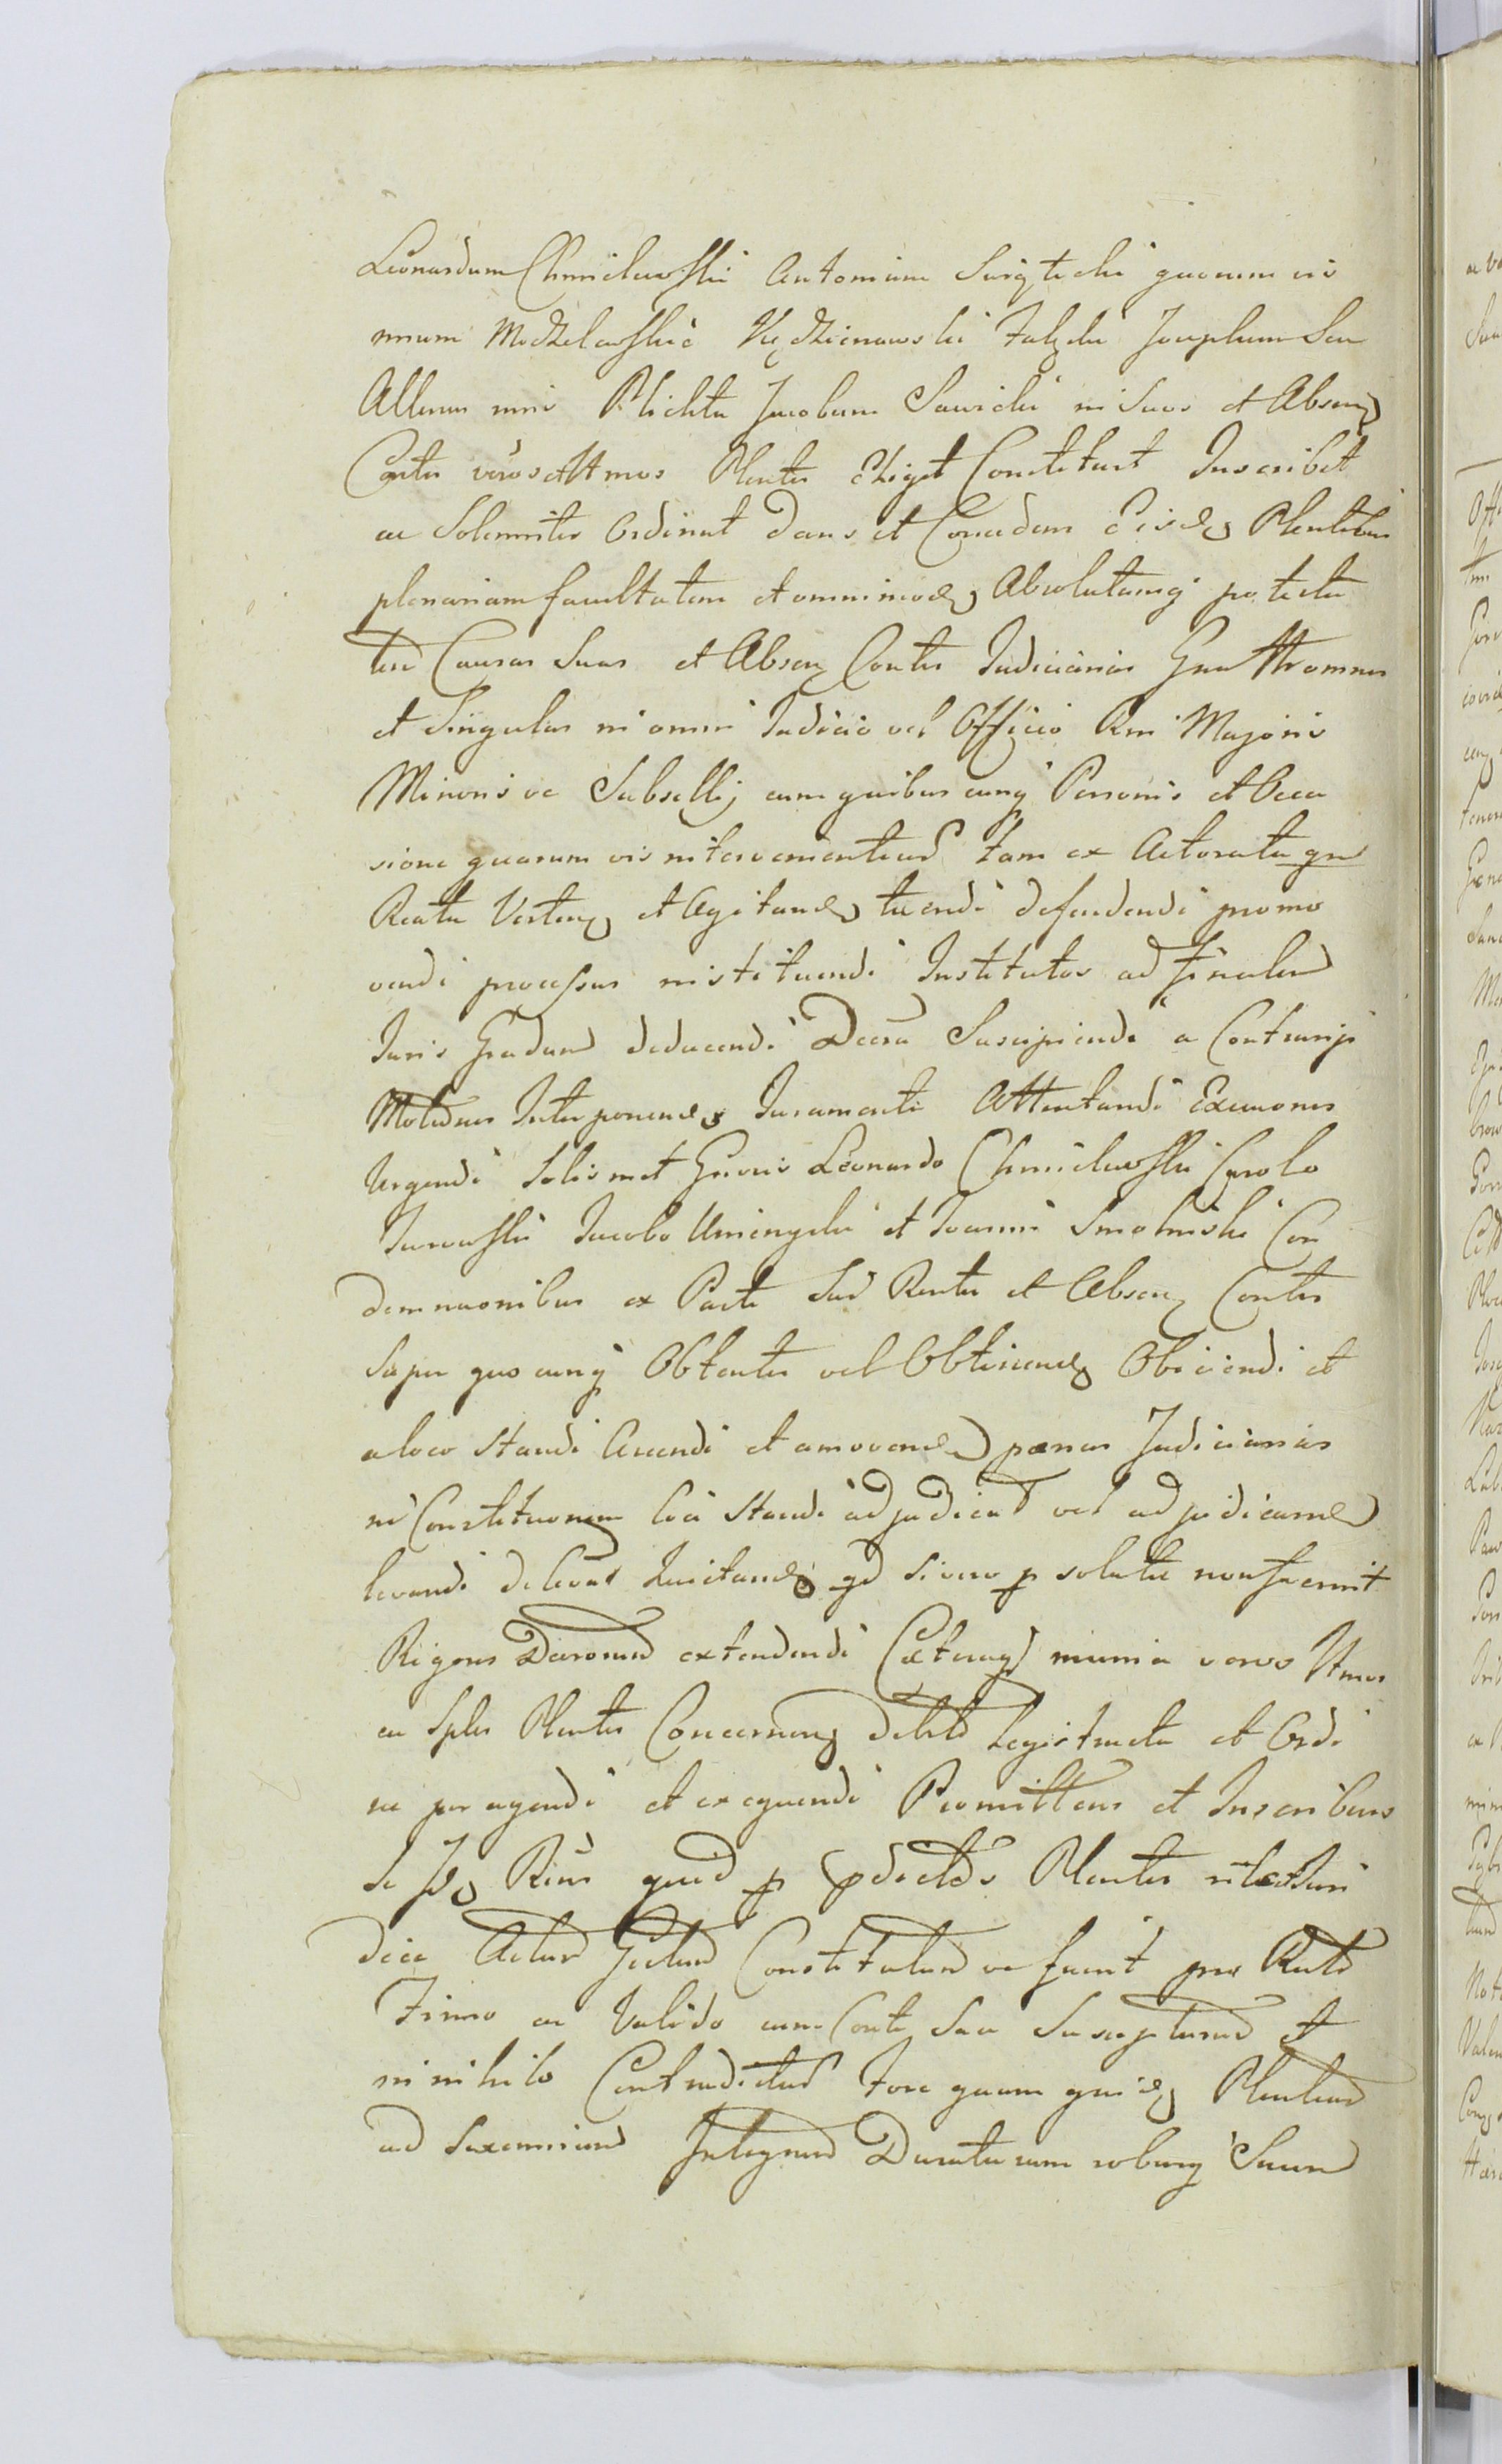 Leonardum Chmielewski Antonium quorum vis
mum Modzelewski Kędzierawski Josephum Seu
Album Plichta Jacobum Sawicki in Suos et Absen
Contes veros et Ittmos Plentes Eligit Constituit Inscribit
ac Solenniter Ordinat Dans et Concedens Eisdem Plentibus
plenariam facultatem et omnimodam Absolutamq potesta
tem Causas Suas et Absen Contis Judiciarias Gnaltr omnes
et Singulas in omni Judicio vel Officio Rni Majoris
Minoris ve Subsellij cum quibus cunq Personis et Occa
sione quarum vis intervenientium tam ex Actoratu qm
Reatu Verten et Agitand tuendi defendendi promo
vendi processus instituendi Institutos ad Finalem
Juris Gradum deducendi Decra Suscipiendi a Contrarijs
Motiones Interponend Juramenti Attentandi Exeuones
Urgendi Solis met Gnosis Leonardo Chmielewski Carolo
Jacobo Umingski et Joanni Smolinski Con
demnaonibus ex Parte Sui Rentis et Absen Contis
Super quos cunq Obtentis vel Obtinend Obiiciendi et
a loco Standi Arcendi et amovend pænas Judiciarias
in Constituonem loci Standi adjudicat vel adjudicand
levandi de levat Quietand qd si vero p solutæ non fuerint
Rigores Decrorum extendendi Cæteraq munia veros Ittmos
ac Sples Plentes Concernen debite Legis tracta et Ordi
ne per agendi et exequendi Promittens et Inscribens
se Rens quid p pdictos Plentes rite et Juri
dice Actum Gestum Constitutum ve fuerit pro Rato
Firmo ac Valido cum Conte Suo Suscepturum et
in nihilo Contradicturum Fore quam quid Plentiam
ad Sexennium Integrum Duraturam roburq Suum